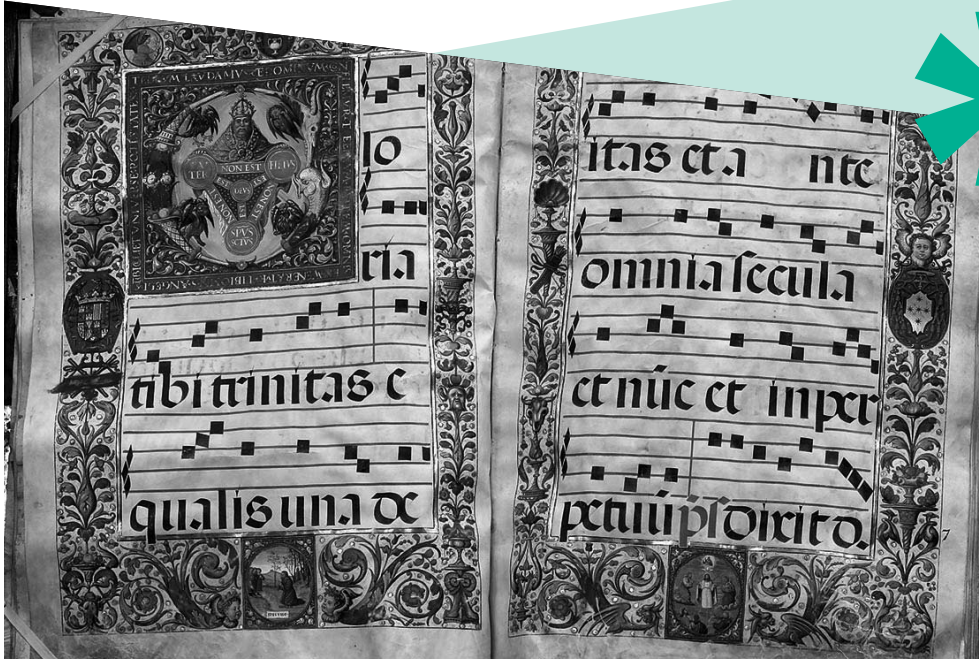 NON EST
lo
ria
tibi trinitas e
qualis una de
itas et a nte
omnia secula
et nūc et in per
petuū ps Dixit d.
7